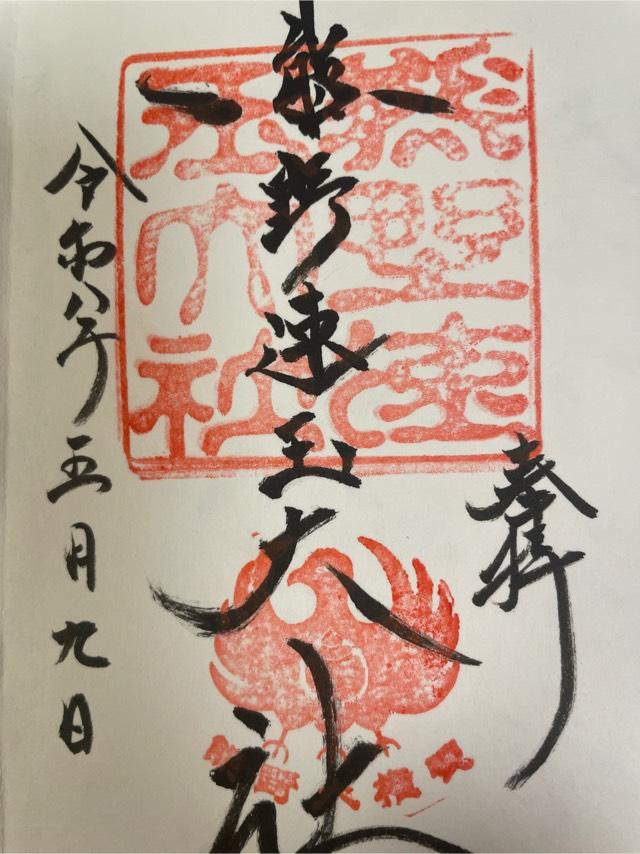 奉拝
熊野速玉大社
令和八年五月九日
熊野速
玉大社